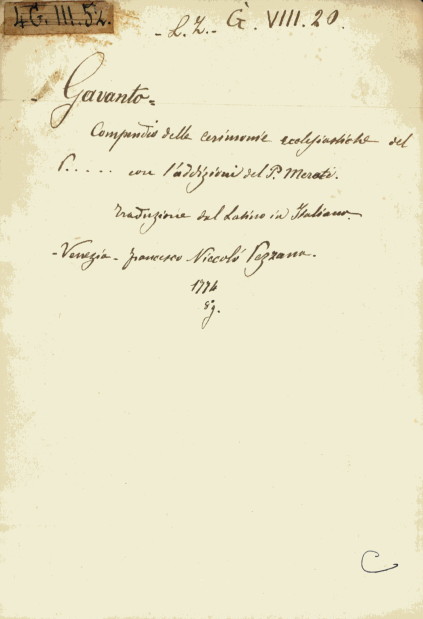 4G. III. 52.
- L. Z. - G. VIII. 20.
- Gavanto =
Compendio delle cerimonie ecclesiastiche del
P. . . . . con l'addizioni del P. Merati.
traduzione dal Latino in Italiano.
- Venezia - Francesco Niccolò Pezzana.
1774
C